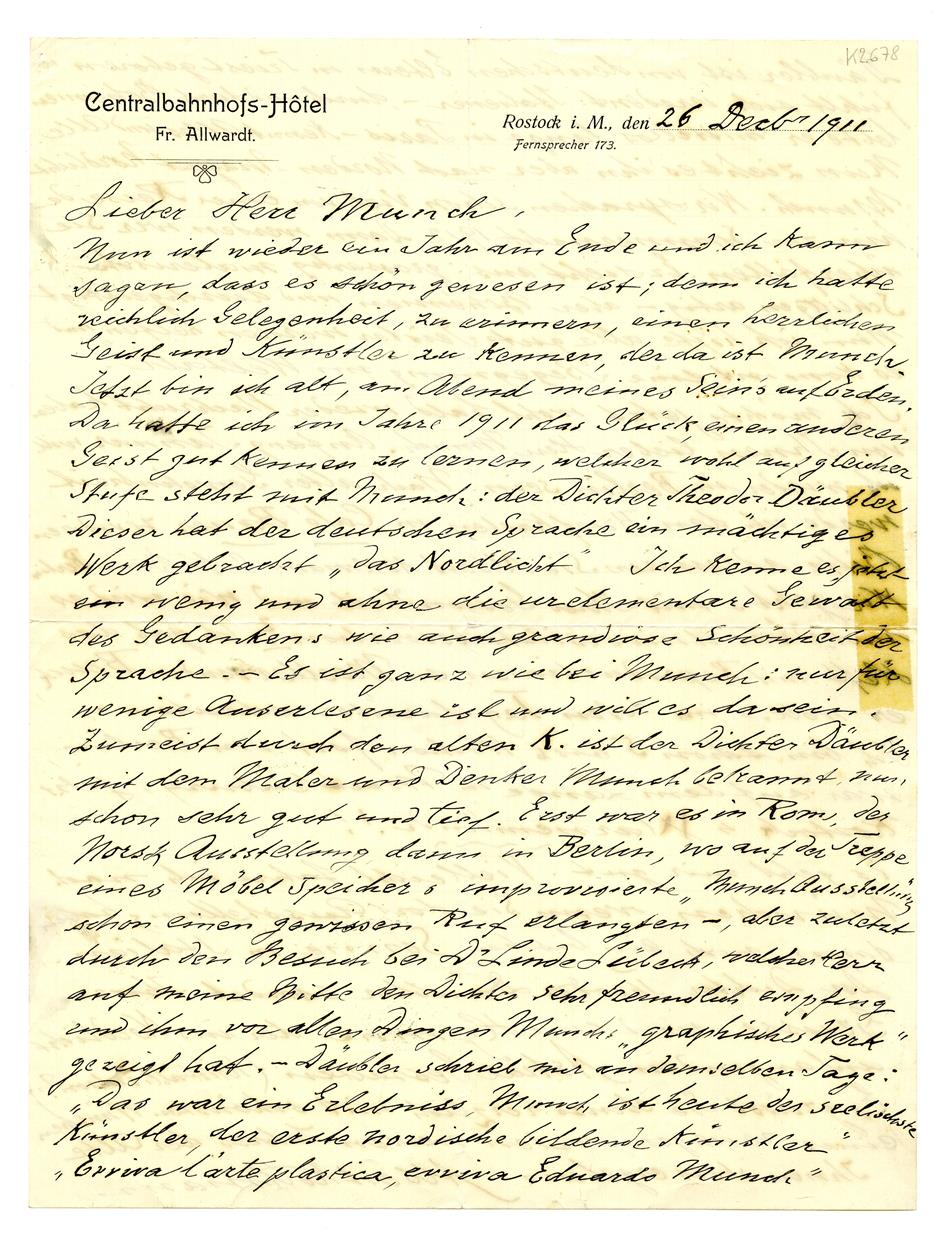 K2678
Centralbahnhofs-Hôtel
Fr. Allwardt.
Rostock i. M., den 26 Decbr 1911
Fernsprecher 173.
Lieber Herr Munch,
Nun ist wieder ein Jahr am Ende und ich kann
sagen, dass es schön gewesen ist; denn ich hatte
reichlich Gelegenheit, zu erinnern, einen herrlichen
Geist und Künstler zu kennen, der da ist Munch.
Jetzt bin ich alt, am Abend meines Sein's auf Erden.
Da hatte ich im Jahre 1911 das Glück, einen anderen
Geist gut kennen zu lernen, welcher wohl auf gleicher
Stufe steht mit Munch: der Dichter Theodor Däubler
Dieser hat der deutschen Sprache ein mächtiges
Werk gebracht „das Nordlicht" Ich kenne es jetzt
ein wenig und ahne die urelementare Gewalt
des Gedankens wie auch grandiose Schönheit der
Sprache. – Es ist ganz wie bei Munch: nur für
wenige Auserlesene ist und will es da sein.
Zumeist durch den alten K. ist der Dichter Däubler
mit dem Maler und Denker Munch bekannt, nun,
schon sehr gut und tief. Erst war es in Rom, der
Norsk Ausstellung, dann in Berlin, wo auf der Treppe
eines Möbel Speichers improvisierte „Munch Ausstellung
schon einen gewissen Ruf erlangten –, aber zuletzt
durch den Besuch bei Dr Linde Lübeck, welcher Herr
auf meine Bitte den Dichter sehr freundlich empfing
und ihm vor allen Dingen Munchs „graphisches Werk"
gezeigt hat. – Däubler schrieb mir an demselben Tage:
„Das war ein Erlebniss, Munch ist heute der seelischste
Künstler, der erste nordische bildende Künstler"
„Evviva l'arte plastica, evviva Eduardo Munch"